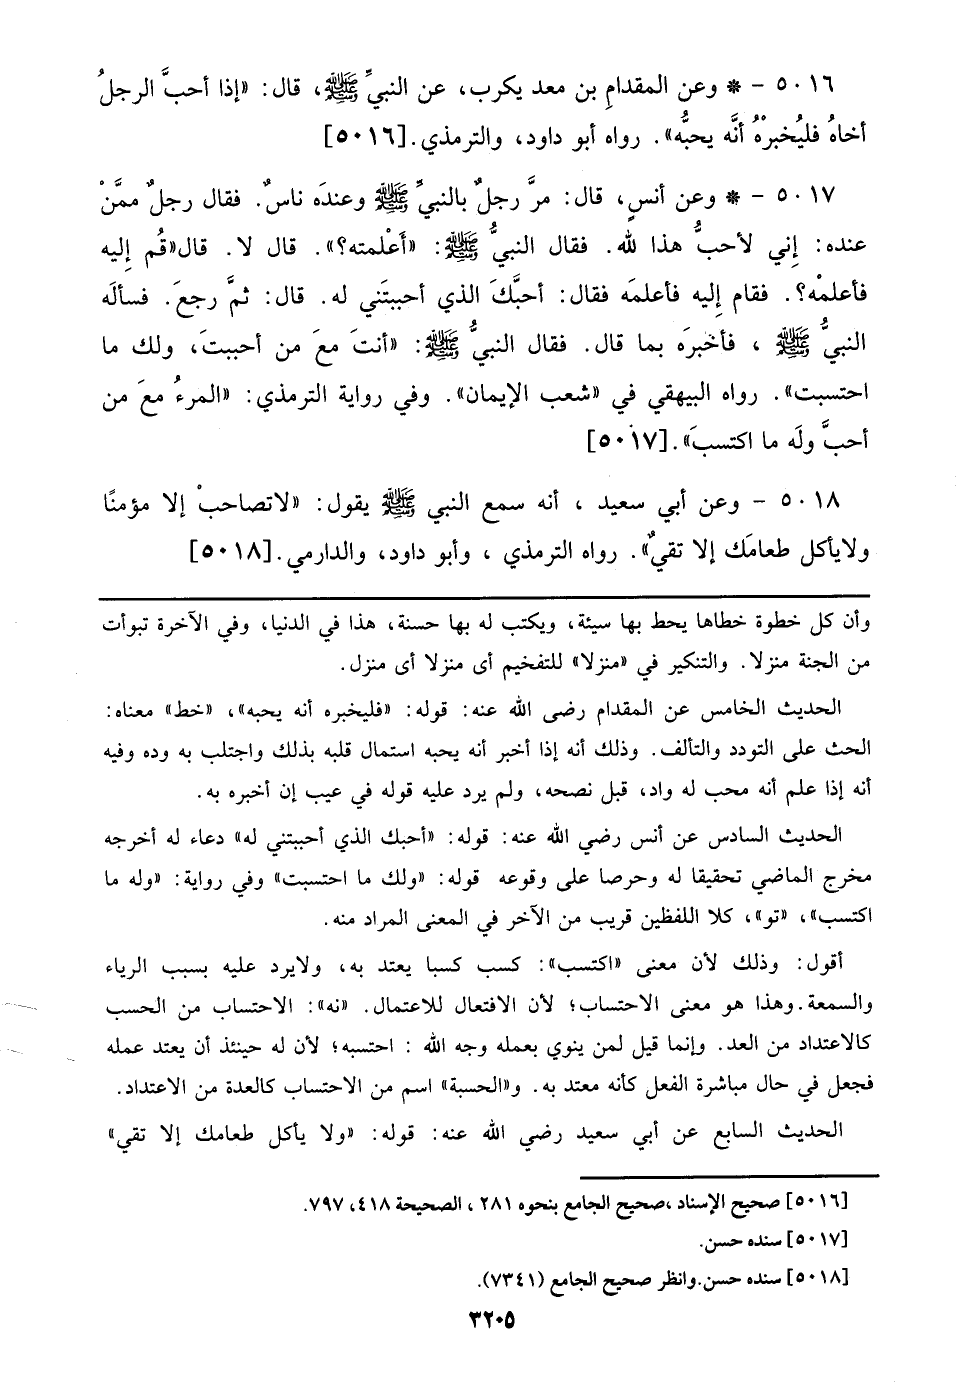 ٥٠١٦ – * وعن المقدامِ بن معد يكرب، عن النبيِّ ﷺ، قال: «إذا أحبَّ الرجلُ
أخاهُ فليُخبرْهُ أنَّه يحبُّه». رواه أبو داود، والترمذي.[٥٠١٦]
٥٠١٧ – * وعن أنسٍ، قال: مرَّ رجلٌ بالنبيِّ ﷺ وعندَه ناسٌ. فقال رجلٌ ممَّنْ
عنده: إني لأحبُّ هذا لله. فقال النبيُّ ﷺ: «أَعْلمته؟». قال لا. قال«قُم إليه
فأعلمْه؟. فقام إليه فأعلمَه فقال: أحبَّكَ الذي أحببتَني له. قال: ثمَّ رجعَ. فسألَه
النبيُّ ﷺ ، فأخبرَه بما قال. فقال النبيُّ ﷺ: «أنتَ معَ من أحببتَ، ولك ما
احتسبت». رواه البيهقي في «شعب الإيمان». وفي رواية الترمذي: «المرءُ معَ من
أحبَّ ولَه ما اكتسبَ».[٥٠١٧]
٥٠١٨ – وعن أبي سعيد ، أنه سمع النبي ﷺ يقول: «لاتصاحبْ إلا مؤمنًا
ولايأكل طعامَك إلا تقيٌ». رواه الترمذي ، وأبو داود، والدارمي.[٥٠١٨]
وأن كل خطوة خطاها يحط بها سيئة، ويكتب له بها حسنة، هذا في الدنيا، وفي الآخرة تبوأت
من الجنة منزلا. والتنكير في «منزلا» للتفخيم أى منزلا أى منزل.
الحديث الخامس عن المقدام رضى الله عنه: قوله: «فليخبره أنه يحبه»، «خط» معناه:
الحث على التودد والتألف. وذلك أنه إذا أخبر أنه يحبه استمال قلبه بذلك واجتلب به وده وفيه
أنه إذا علم أنه محب له واد، قبل نصحه، ولم يرد عليه قوله في عيب إن أخبره به.
الحديث السادس عن أنس رضي الله عنه: قوله: «أحبك الذي أحببتني له» دعاء له أخرجه
مخرج الماضي تحقيقا له وحرصا على وقوعه قوله: «ولك ما احتسبت» وفي رواية: «وله ما
اكتسب»، «تو»، كلا اللفظين قريب من الآخر في المعنى المراد منه.
أقول: وذلك لأن معنى «اكتسب»: كسب كسبا يعتد به، ولايرد عليه بسبب الرياء
والسمعة.وهذا هو معنى الاحتساب؛ لأن الافتعال للاعتمال. «نه»: الاحتساب من الحسب
كالاعتداد من العد. وإنما قيل لمن ينوي بعمله وجه الله : احتسبه؛ لأن له حينئذ أن يعتد عمله
فجعل في حال مباشرة الفعل كأنه معتد به. و«الحسبة» اسم من الاحتساب كالعدة من الاعتداد.
الحديث السابع عن أبي سعيد رضي الله عنه: قوله: «ولا يأكل طعامك إلا تقي»
[٥٠١٦] صحيح الإسناد ،صحيح الجامع بنحوه ٢٨١ ، الصحيحة ٤١٨، ٧٩٧.
[٥٠١٧] سنده حسن.
[٥٠١٨] سنده حسن.وانظر صحيح الجامع (٧٣٤١).
٣٢٠٥